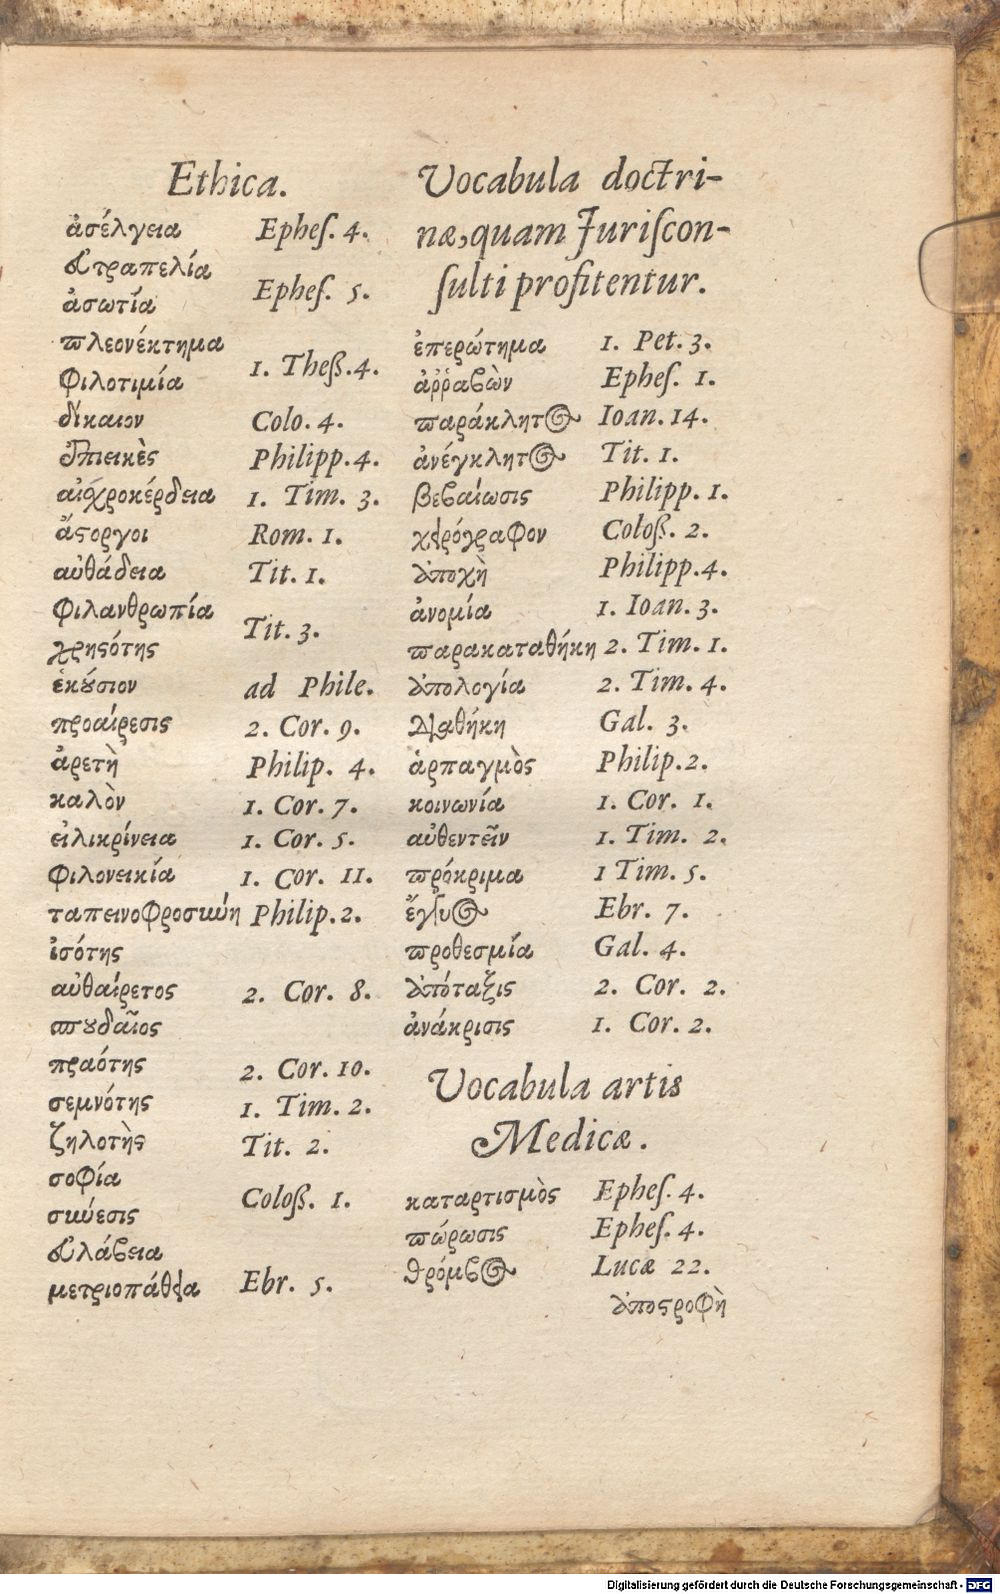 Ethica.
ἀσέλγεια Ephes. 4.
εὐτραπελία
ἀσωτία Ephes. 5.
πλεονέκτημα
φιλοτιμία 1. Theß. 4.
δίκαιον Colo. 4.
ἐπιεικὲς Philipp. 4.
αἰσχροκέρδεια 1. Tim. 3.
ἄστοργοι Rom. 1.
αὐθάδεια Tit. 1.
φιλανθρωπία
χρηστότης Tit. 3.
ἑκούσιον ad Phile.
προαίρεσις 2. Cor. 9.
ἀρετὴ Philip. 4.
καλὸν 1. Cor. 7.
εἰλικρίνεια 1. Cor. 5.
φιλονεικία 1. Cor. 11.
ταπεινοφροσύνη Philip. 2.
ἰσότης
αὐθαίρετος 2. Cor. 8.
σπουδαῖος
πραότης 2. Cor. 10.
σεμνότης 1. Tim. 2.
ζηλοτὴς Tit. 2.
σοφία
σύνεσις Coloß. 1.
εὐλάβεια
μετριοπάθεια Ebr. 5.
Vocabula doctri-
næ, quam Iuriscon-
sulti profitentur.
ἐπερώτημα 1. Pet. 3.
ἀῤῥαβὼν Ephes. 1.
παράκλητος Ioan. 14.
ἀνέγκλητος Tit. 1.
βεβαίωσις Philipp. 1.
χειρόγραφον Coloß. 2.
ἀποχὴ Philipp. 4.
ἀνομία 1. Ioan. 3.
παρακαταθήκη 2. Tim. 1.
ἀπολογία 2. Tim. 4.
Διαθήκη Gal. 3.
ἁρπαγμὸς Philip. 2.
κοινωνία 1. Cor. 1.
αὐθεντεῖν 1. Tim. 2.
πρόκριμα 1 Tim. 5.
ἔγγυος Ebr. 7.
προθεσμία Gal. 4.
ἀπόταξις 2. Cor. 2.
ἀνάκρισις 1. Cor. 2.
Vocabula artis
Medicæ.
καταρτισμὸς Ephes. 4.
πώρωσις Ephes. 4.
θρόμβος Lucæ 22.
ἀποστροφὴ
Digitalisierung gefördert durch die Deutsche Forschungsgemeinschaft - DFG